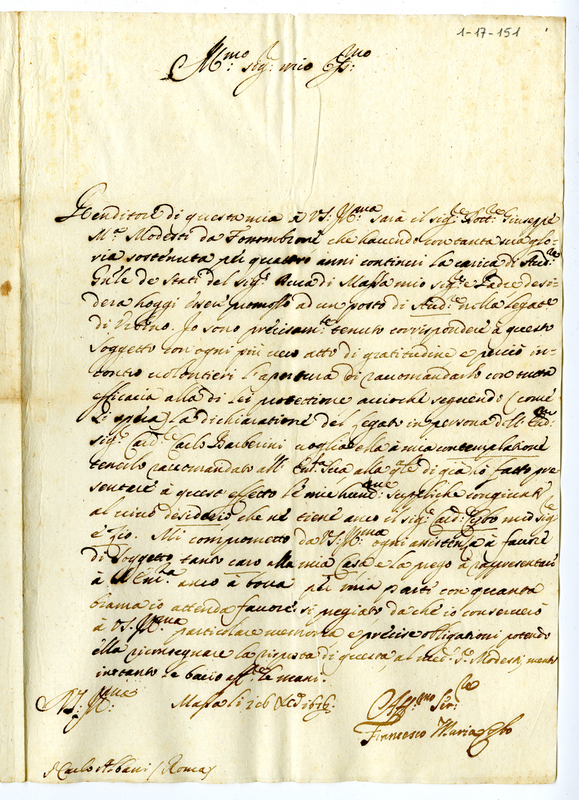 1-17-151
Ill:mo Sig: mio Oss:mo
Renditore di questa mia à V.S. Ill:ma sarà il Sig: Dott:re Giuseppe
M:a Modesti da Fossombrone che havendo con tanta sua glo-
ria sostenuta per quattro anni continui la carica di Aud:re
Gn'le de Stati del Sig: Duca di Massa mio Sig:re e Padre desi-
dera hoggi esser promosso ad un posto di Aud:re nella Legat:e
di Urbino. Io sono precisam:te tenuto corrispondere à questo
soggetto con ogni più vivo atto di gratitudine e perciò in-
contro volontieri l'apertura di raccomandarlo con tutta
efficacia alla di lei protettione accioche seguendo (come
si spera) la dichiaratione del Legato in persona dell'
Sig: Card: Carlo Barberini voglia ella à mia contemplatione
tenerlo raccomandato all' Em:a Sua alla q:le di già io fatto pre
sentare à quest' effetto le mie suppliche congiunte
al vivo desiderio che ne tiene anco il Sig: Card: Cybo mio Sig:
e Zio. Mi comprometto da V.S. Ill:ma ogni assistenza à favore
di soggetto tanto caro alla mia Casa e la prego à rappresentare
à S. Em:za anco à bocca per mia parte con quanta
brama io attenda favore si pregiato da che io conserverò
à V.S. Ill:ma particolare memoria e precise obligationi potendo
ella riconsegnare la risposta di questa al med:o S: Modesti, mentre
restando le bacio aff:te le mani.
V.S. Ill:ma Massa li
Aff:mo Ser:re
Francesco Maria Cybo
S: Carlo Albani / Roma